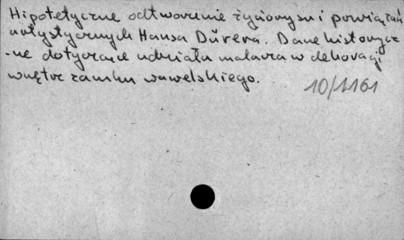 Hipotetyczne odtworenie życiorysu i powiązań
artystycznych Hansa Dürera. Dane historycz
-ne dotyczące udziału malarza w dekoracji
wnętrz zamku wawelskiego.
10/1161